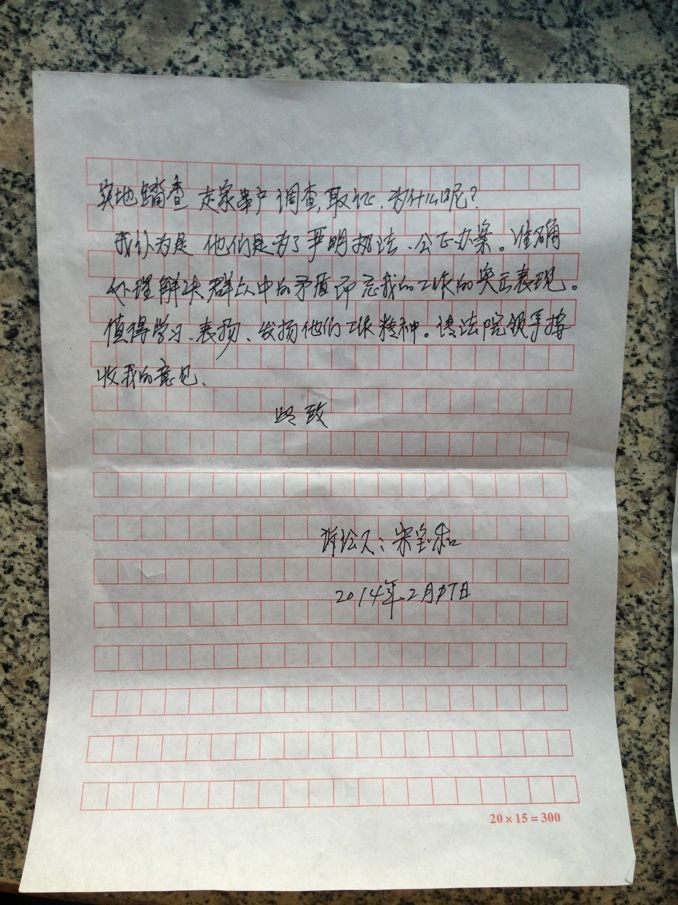 实地踏查 走家串户 调查,取证,为什么呢?
我认为是 他们是为了严明执法、公正办案。准确
处理解决群众中的矛盾而忘我的工作的突击表现。
值得学习、表扬、发扬他们工作精神。请法院领导接
收我的意见.
此致
诉讼人:宋宝和
2014年.2月17日
20×15=300